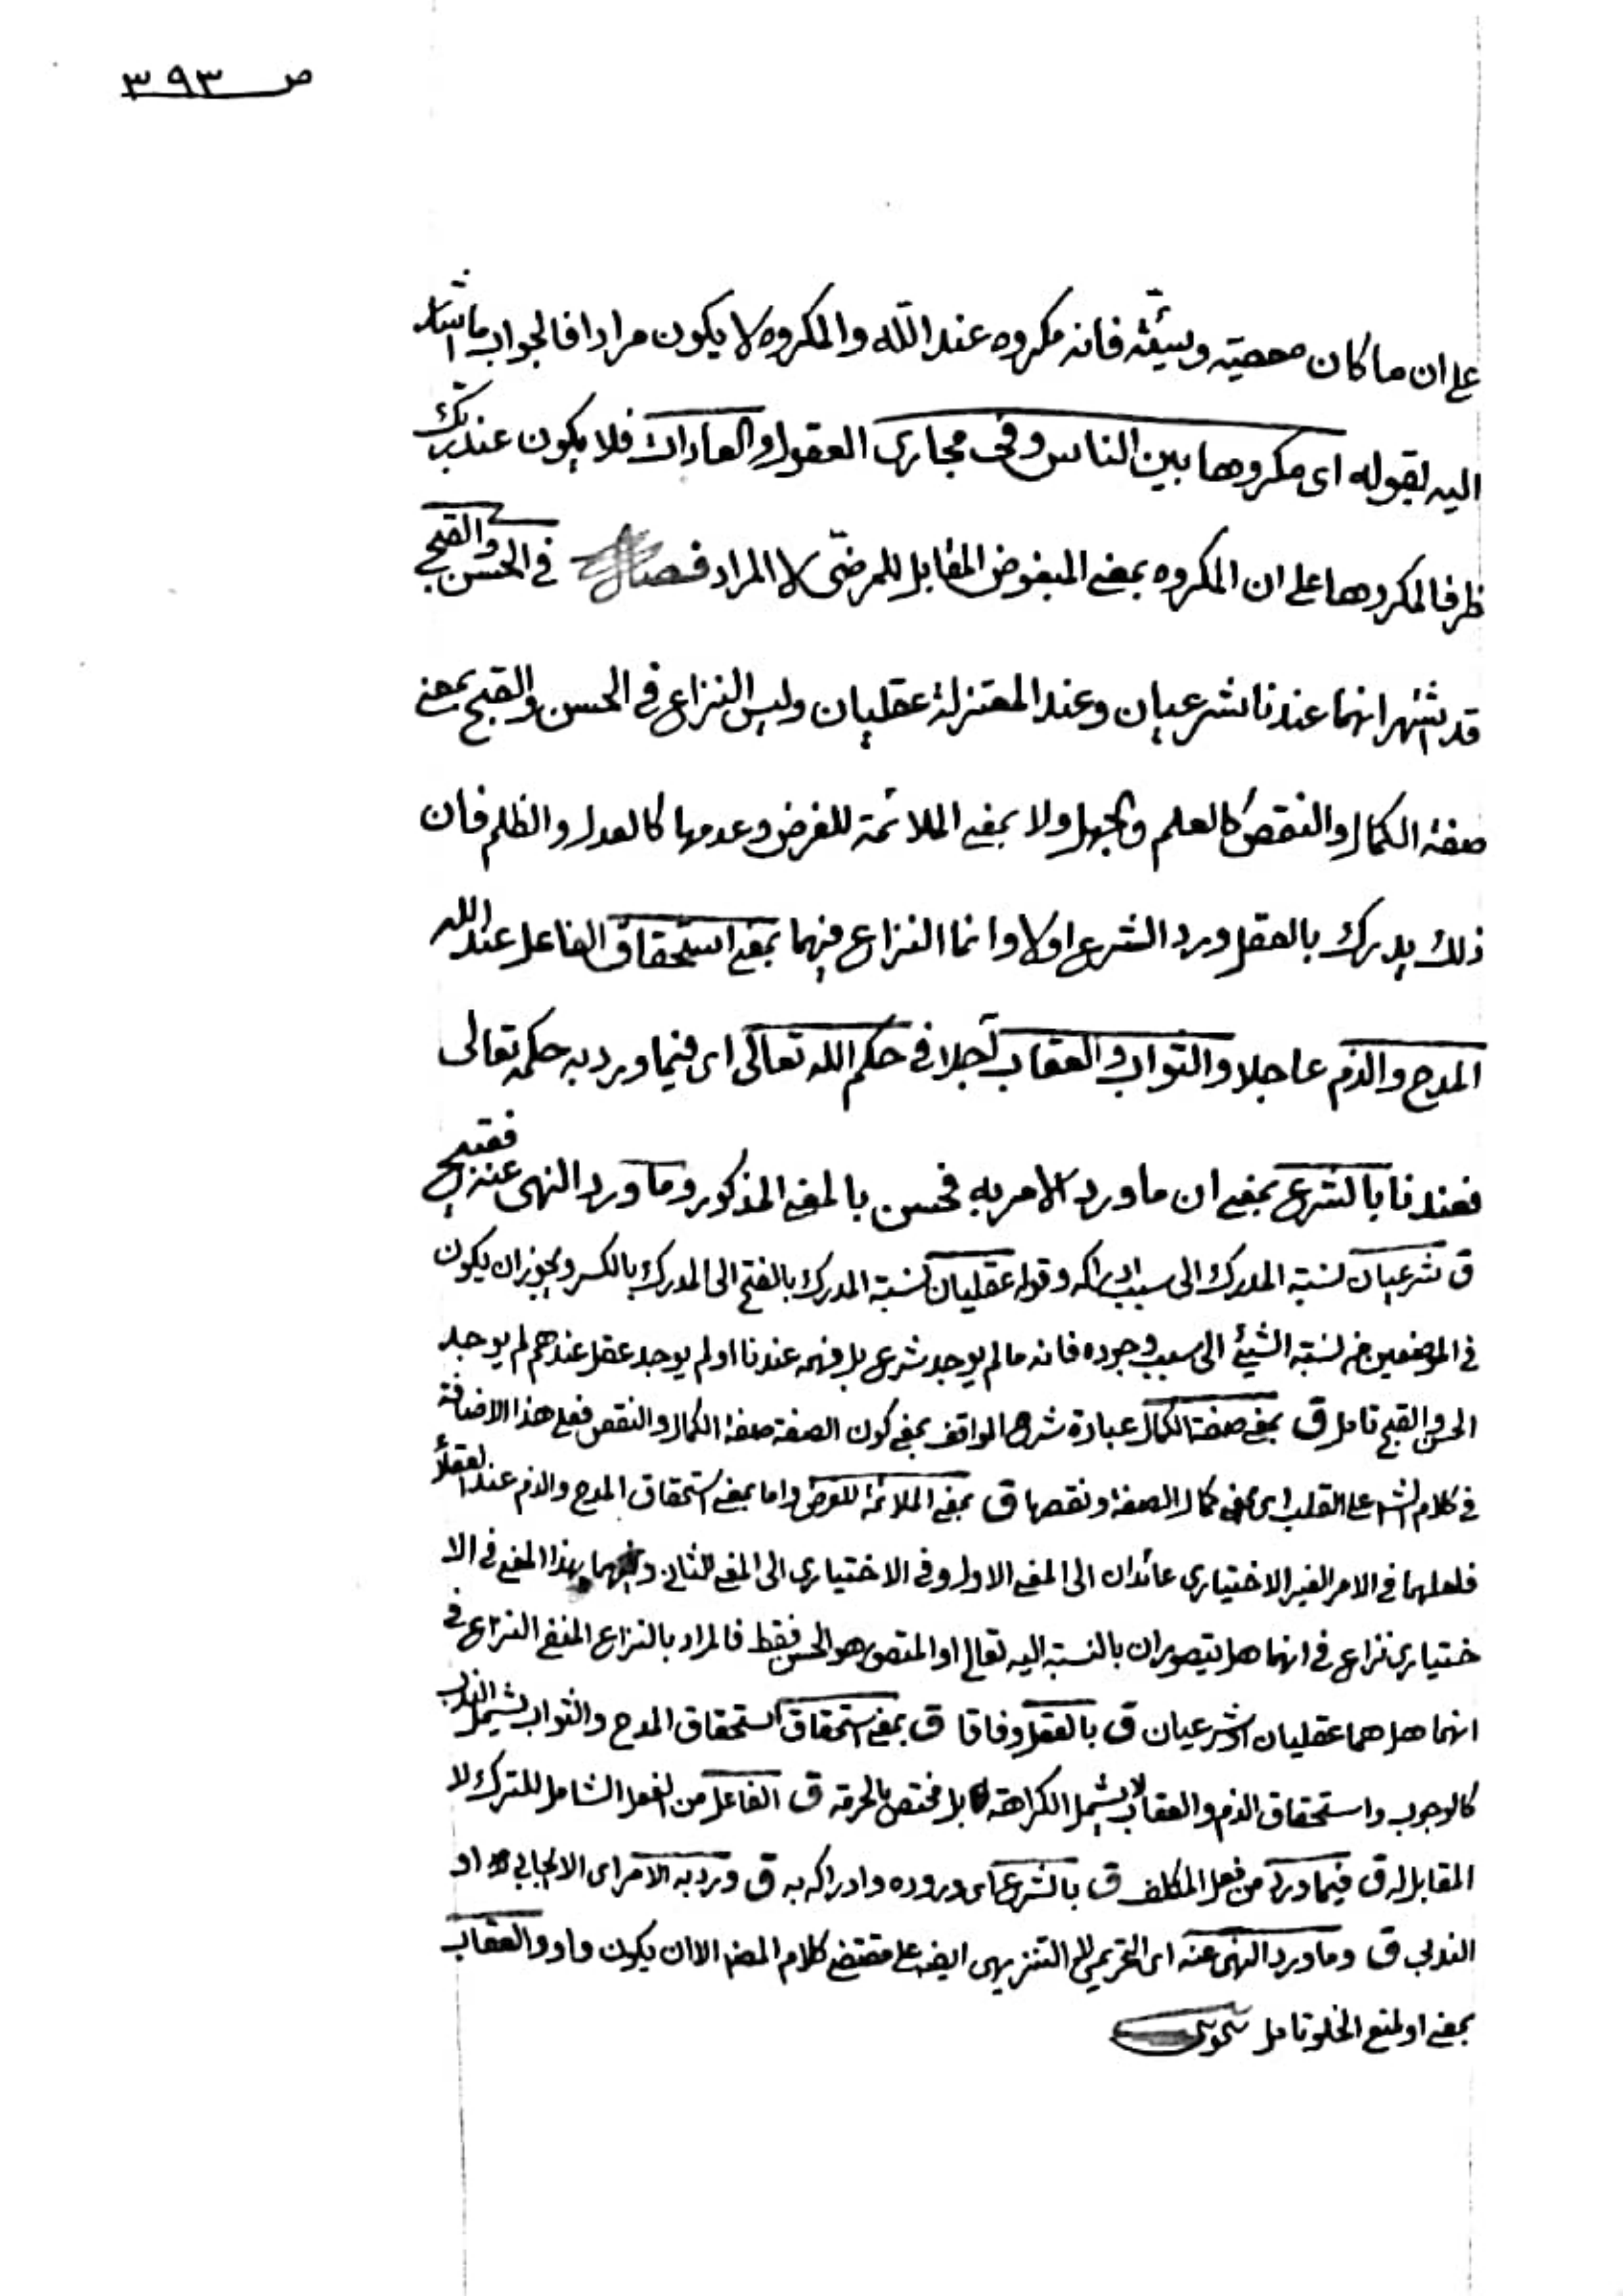 ص ٣٩٣
على ان ما كان معصية وسيئة فانه مكروه عند اللّه والمكروه لا يكون مرادا فالجواب ما اشار
اليه بقوله اى مكروها بين الناس وفى مجارى العقول والعادات فلا يكون عند ربّك
ظرفا لمكروها على ان المكروه بمعنى المبغوض المقابل للمرضىّ لا المراد فصل فى الحسن والقبح
قد اشتهر انهما عندنا شرعيان وعند المعتزلة عقليان وليس النزاع فى الحسن والقبح بمعنى
صفة الكمال والنقص كالعلم والجهل ولا بمعنى الملائمة للغرض وعدمها كالعدل والظلم فان
ذلك يدرك بالعقل ورد الشرع اولا وانما النزاع فيهما بمعنى استحقاق الفاعل عند الله
المدح والذم عاجلا والثواب والعقاب آجلا فى حكم الله تعالى اى فيما ورد به حكمه تعالى
فعندنا بالشرع بمعنى ان ما ورد الامر به فحسن بالمعنى المذكور وما ورد النهى عنه فقبيح
ق شرعيان نسبة المدرك الى سبب ادراكه وقوله عقليان نسبة المدرك بالفتح الى المدرك بالكسر ويجوز ان يكون
فى الموضعين من نسبة الشيئ الى سبب وجوده فانه ما لم يوجد شرع بل فهمه عندنا او لم يوجد عقل عندهم لم يوجد
الحسن والقبح تامل ق بمعنى صفة الكمال عبارة شرح المواقف بمعنى كون الصفة صفة الكمال والنقص فعلى هذا الاضافة
فى كلام الش على القلب اى بمعنى كمال الصفة ونقصها ق بمعنى الملائمة للغرض واما بمعنى استحقاق المدح والذم عند العقلاء
فلعلهما فى الامر الغير الاختيارى عائدان الى المعنى الاول وفى الاختيارى الى المعنى الثانى بهذا المعنى فى الا
ختيارى نزاع فى انهما هل يتصوران بالنسبة اليه تعالى او المتصور هو الحسن فقط فالمراد بالنزاع المنفى النزاع فى
انهما هل هما عقليان او شرعيان ق بالعقل وفاقا ق بمعنى استحقاق استحقاق المدح والثواب يشمل الندب
كالوجوب واستحقاق الذم والعقاب لا يشمل الكراهة بل مختص بالحرمة ق الفاعل من الفعل الشامل للترك لا
المقابل له ق فيما ورد من فعل المكلف ق بالشرع اى وروده وادراكه به ق ورد به الامر اى الايجابى او
الندبى ق وما ورد النهى عنه اى التحريمى التنزيهى ايضا على مقتضى كلام المص الا ان يكون واو والعقاب
بمعنى او لمنع الخلو تامل